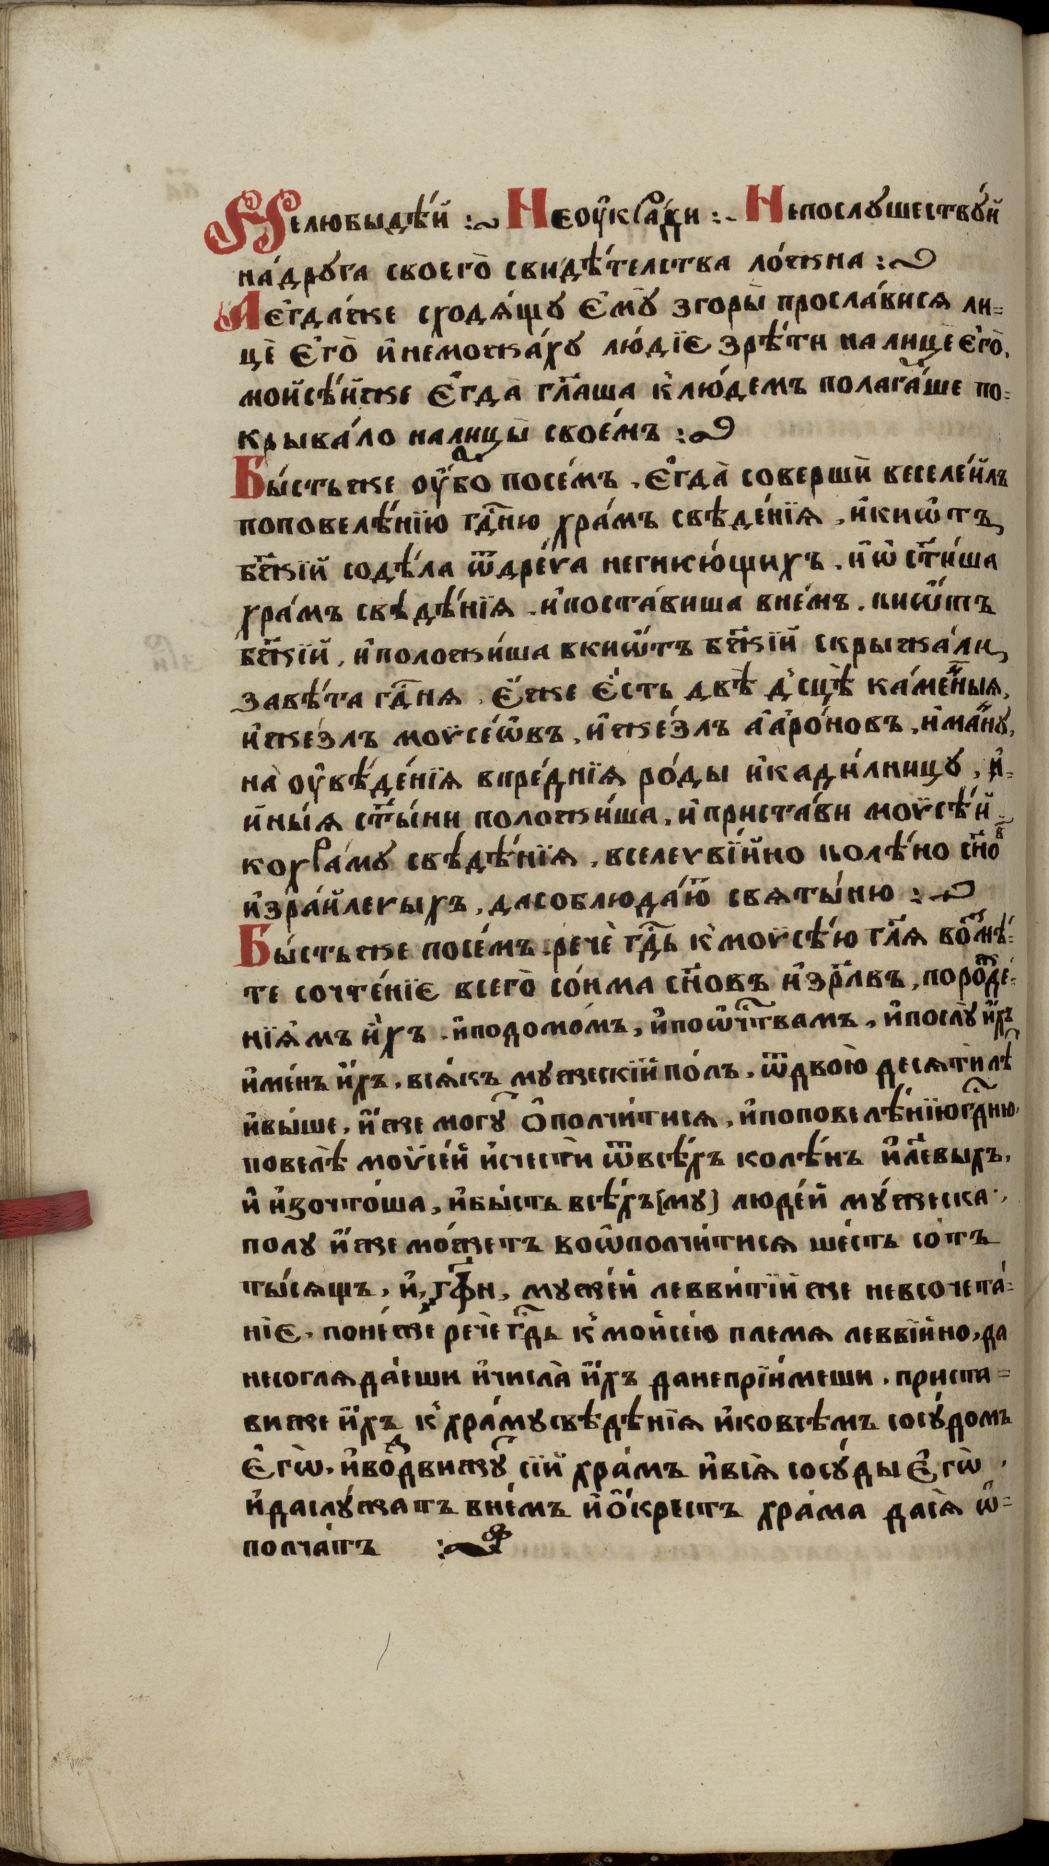 Нелюбыдѣ́й :~ Неоу҆кра́ди :~ Непослꙋшествꙋ́й
на́дрꙋга своего̀ свидѣ́телства ло́жна :~
Аегда́же сходѧ́щꙋ є҆мꙋ̀ згоры̀ просла́висѧ ли=
цѐ є҆го̀ и҆неможа́хꙋ лю́дїє зрѣ́ти налицѐ є҆го̀,
мои҆сѣ́йже є҆гда̀ гл҃аша к лю́демъ полага́ше по=
крыва́ло налицы̀ свое́мъ :~
Бы́стьже оу҆́бо посе́мъ , є҆гда̀ совершѝ веселеи́лъ
поповелѣ́нїю гдⷭ҇ню хра́мъ свѣде́нїѧ , и҆киѡ́тъ
бж҃їй содѣ́ла ѿдре́ва негнию́щихъ . и҆ ѡ҆ст҃и́ша
хра́мъ свѣдѣ́нїѧ . и҆поста́виша вне́мъ . киѡ́тъ
бж҃їй , и҆положи́ша вкиѡ́тъ бж҃їй скрыжа́ли
завѣ́та гдⷭ҇нѧ , є҆́же є҆́сть двѣ̀ дсцѣ̀ ка́менныѧ ,
и҆же́злъ моѵсе́ѡвъ , и҆же́злъ а҆аро́новъ , и҆ма́ннꙋ ,
на оу҆вѣ́де́нїѧ впре́днїѧ ро́ды и҆кади́лницꙋ , и҆=
и҆ны́ѧ ст҃ы́ни положи́ша , и҆приста́ви моѵсѣ́й
кохра́мꙋ свѣдѣ́нїѧ , вселевїи́но колѣ́но сн҃овъ
и҆зра́илевыхъ , дасоблюда́ютъ свѧты́ню :~
Бы́стьже посе́мъ . речѐ гдⷭ҇ь к моѵсѣ́ю гл҃ѧ возмѣ́=
те сочте́нїє всего̀ со́нма сн҃овъ и҆зр҃лвъ , порожде́=
нїѧ́мъ и҆́хъ . и҆подомо́мъ , и҆поѡ҆ч҃твамъ , и҆послꙋ̀ и҆́хъ
и҆ме́нъ и҆́хъ , всѧ́къ мꙋжескїй по́лъ , ѿдвою̀ десѧ́ти лѣ́тъ
и҆вы́ше , и҆́же могꙋ́тъ ѻ҆полчи́тисѧ , и҆поповелѣ́нїюгдⷭ҇ню ,
повелѣ̀ моѵсе́й и҆сче́сти ѿвсѣ́хъ колѣ́нъ и҆л҃евыхъ ,
и҆ и҆зочто́ша , и҆бы́сть всѣ́хъ[мꙋ] люде́й мꙋ́жеска ,
полꙋ и҆́же мо́жетъ воѡ҆полчи́тисѧ ше́сть со́тъ
ты́сѧщъ , и҆ ,гфн , мꙋже́й леввитїй же невсочета́=
нїє . поне́же речѐ гдⷭ҇ь к мои҆се́ю племѧ леввїи́но , да
несоглѧда́еши и҆числа̀ и҆́хъ данепрїи́меши . приста=
виже и҆́хъ к хра́мꙋсвѣдѣ́нїѧ и҆ковсѣ́мъ сосꙋ́домъ
є҆гѡ̀ , и҆воздви́жꙋтъ сїй хра́мъ и҆всѧ̀ сосꙋ́ды є҆гѡ̀ ,
и҆даслꙋ́жатъ вне́мъ и҆ѻ҆́крестъ хра́ма дасѧ̀ ѡ҆=
полча́тъ :~